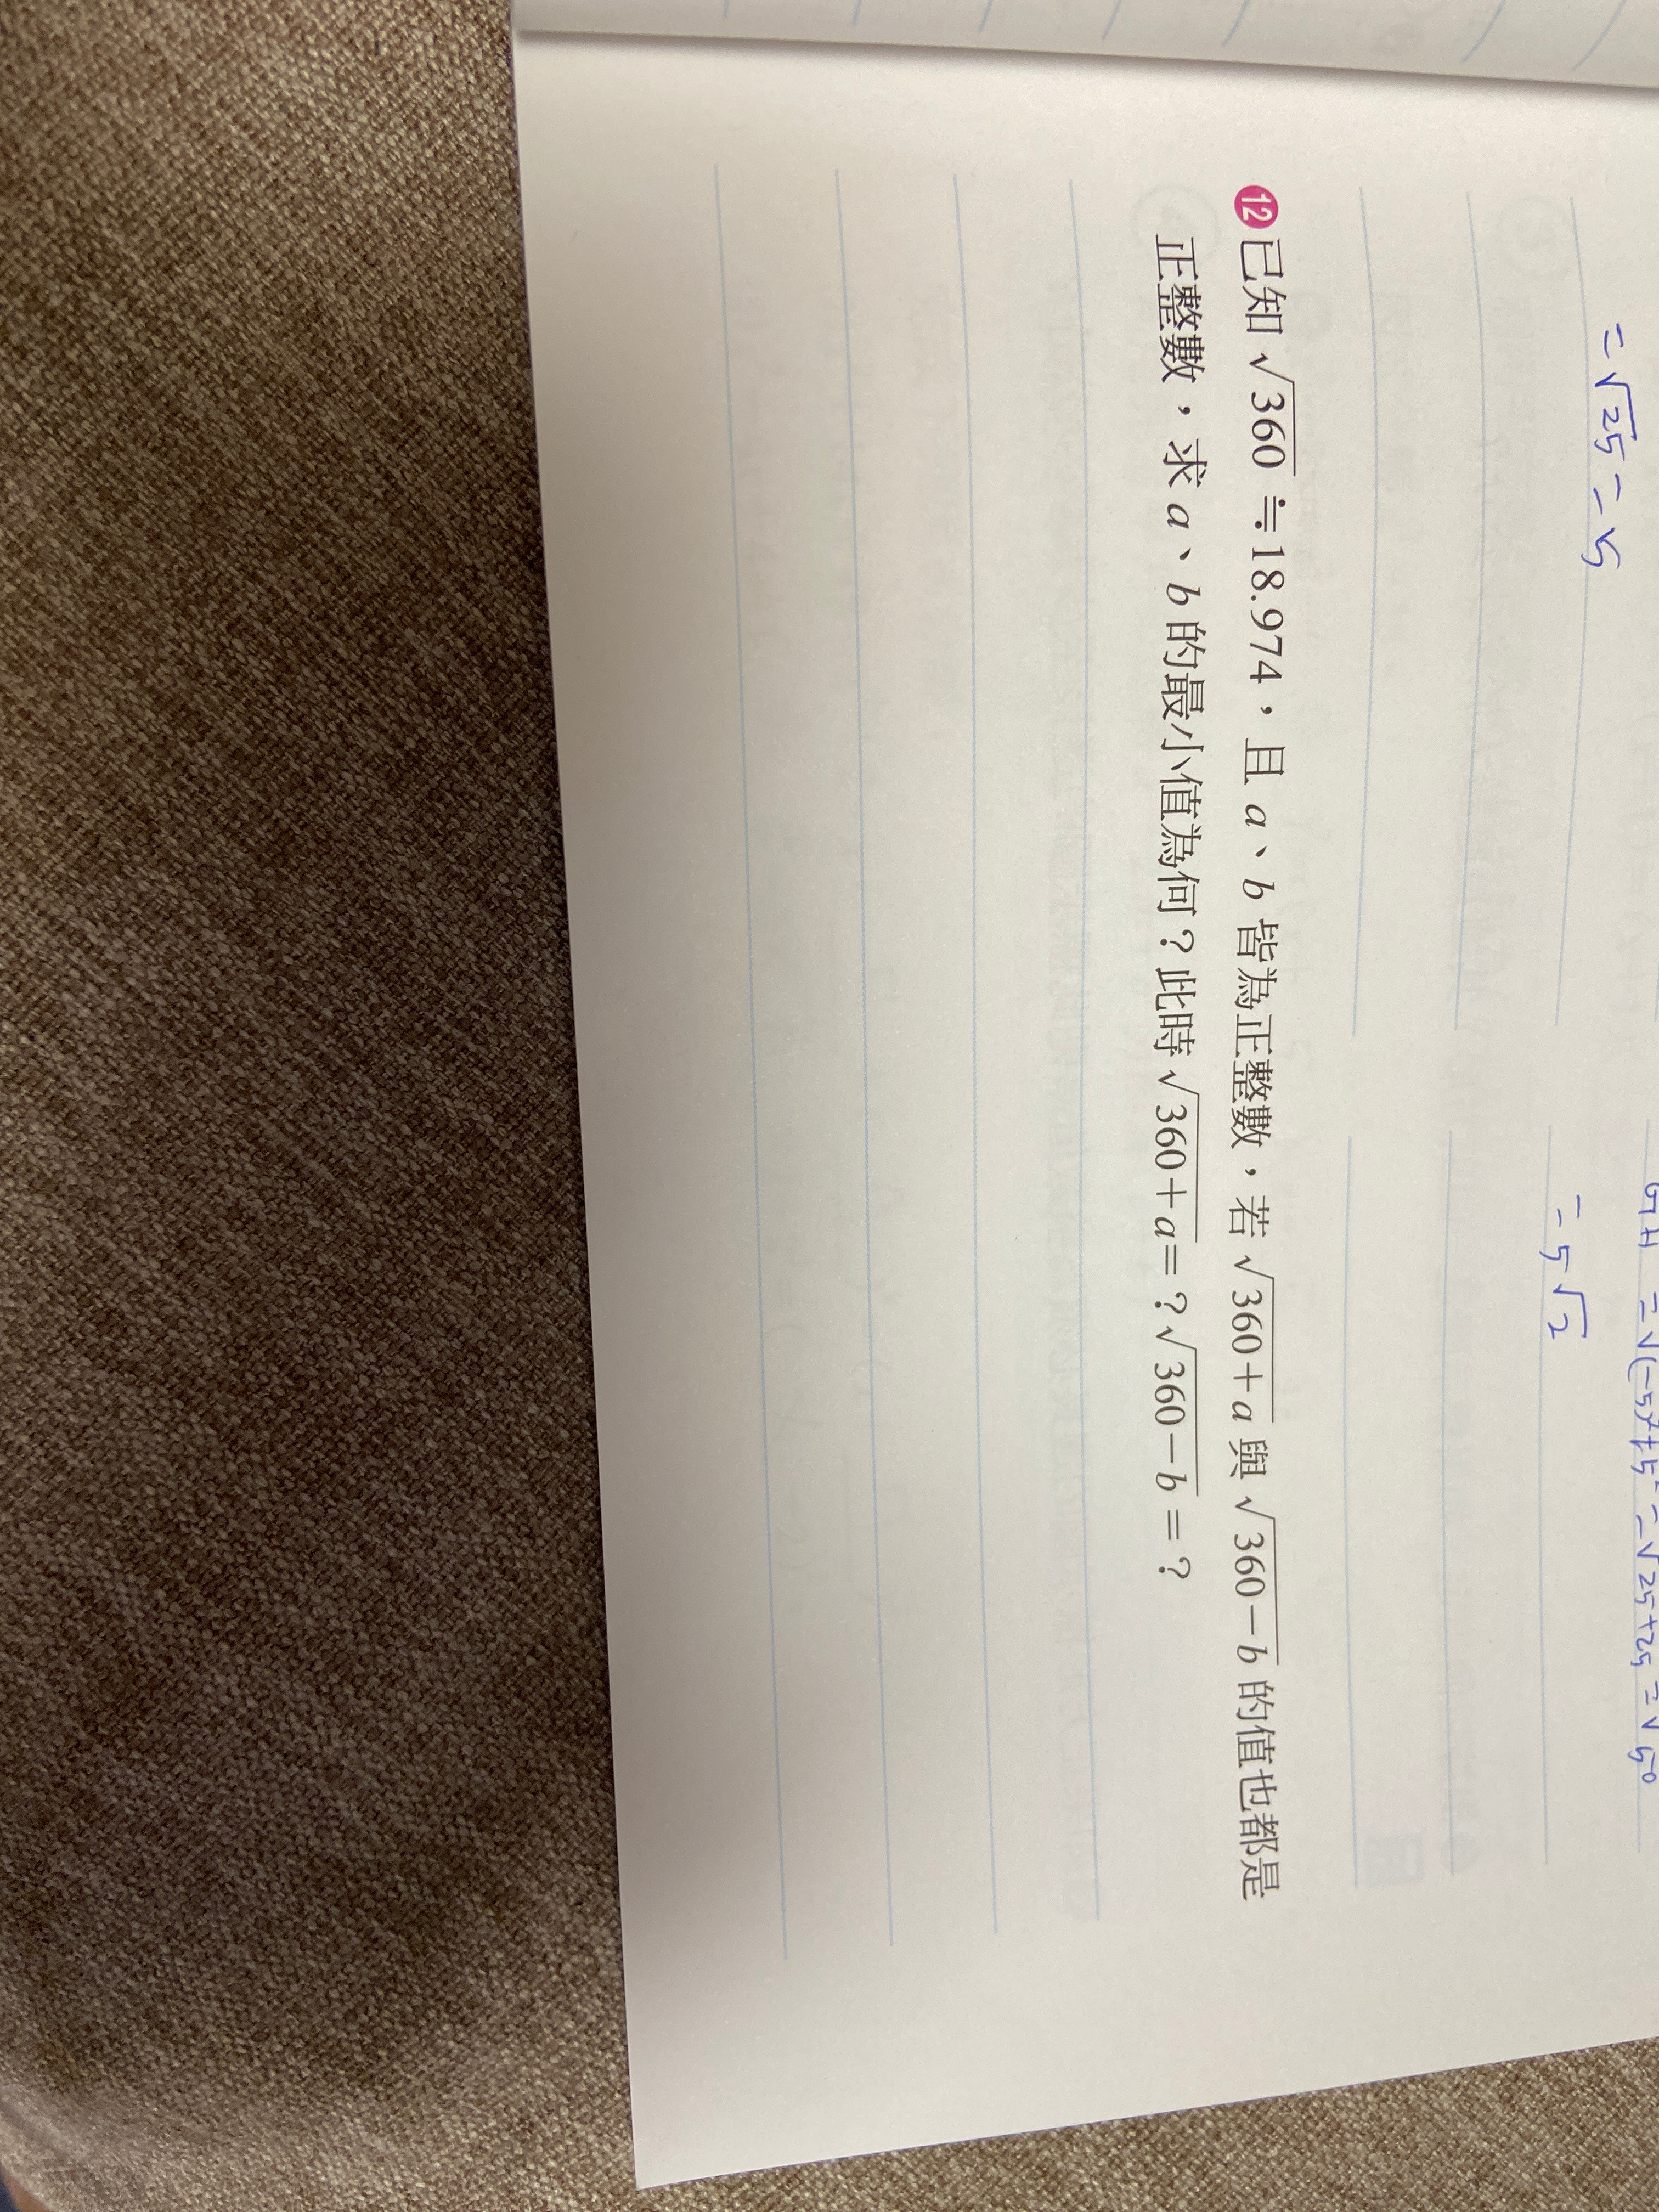 = √25 = 5
GH = √(-5)²+5² = √25+25 = √50
= 5√2
12 已知 √360 ≒ 18.974，且 a、b 皆為正整數，若 √360+a 與 √360−b 的值也都是
正整數，求 a、b 的最小值為何？此時 √360+a = ？√360−b = ？